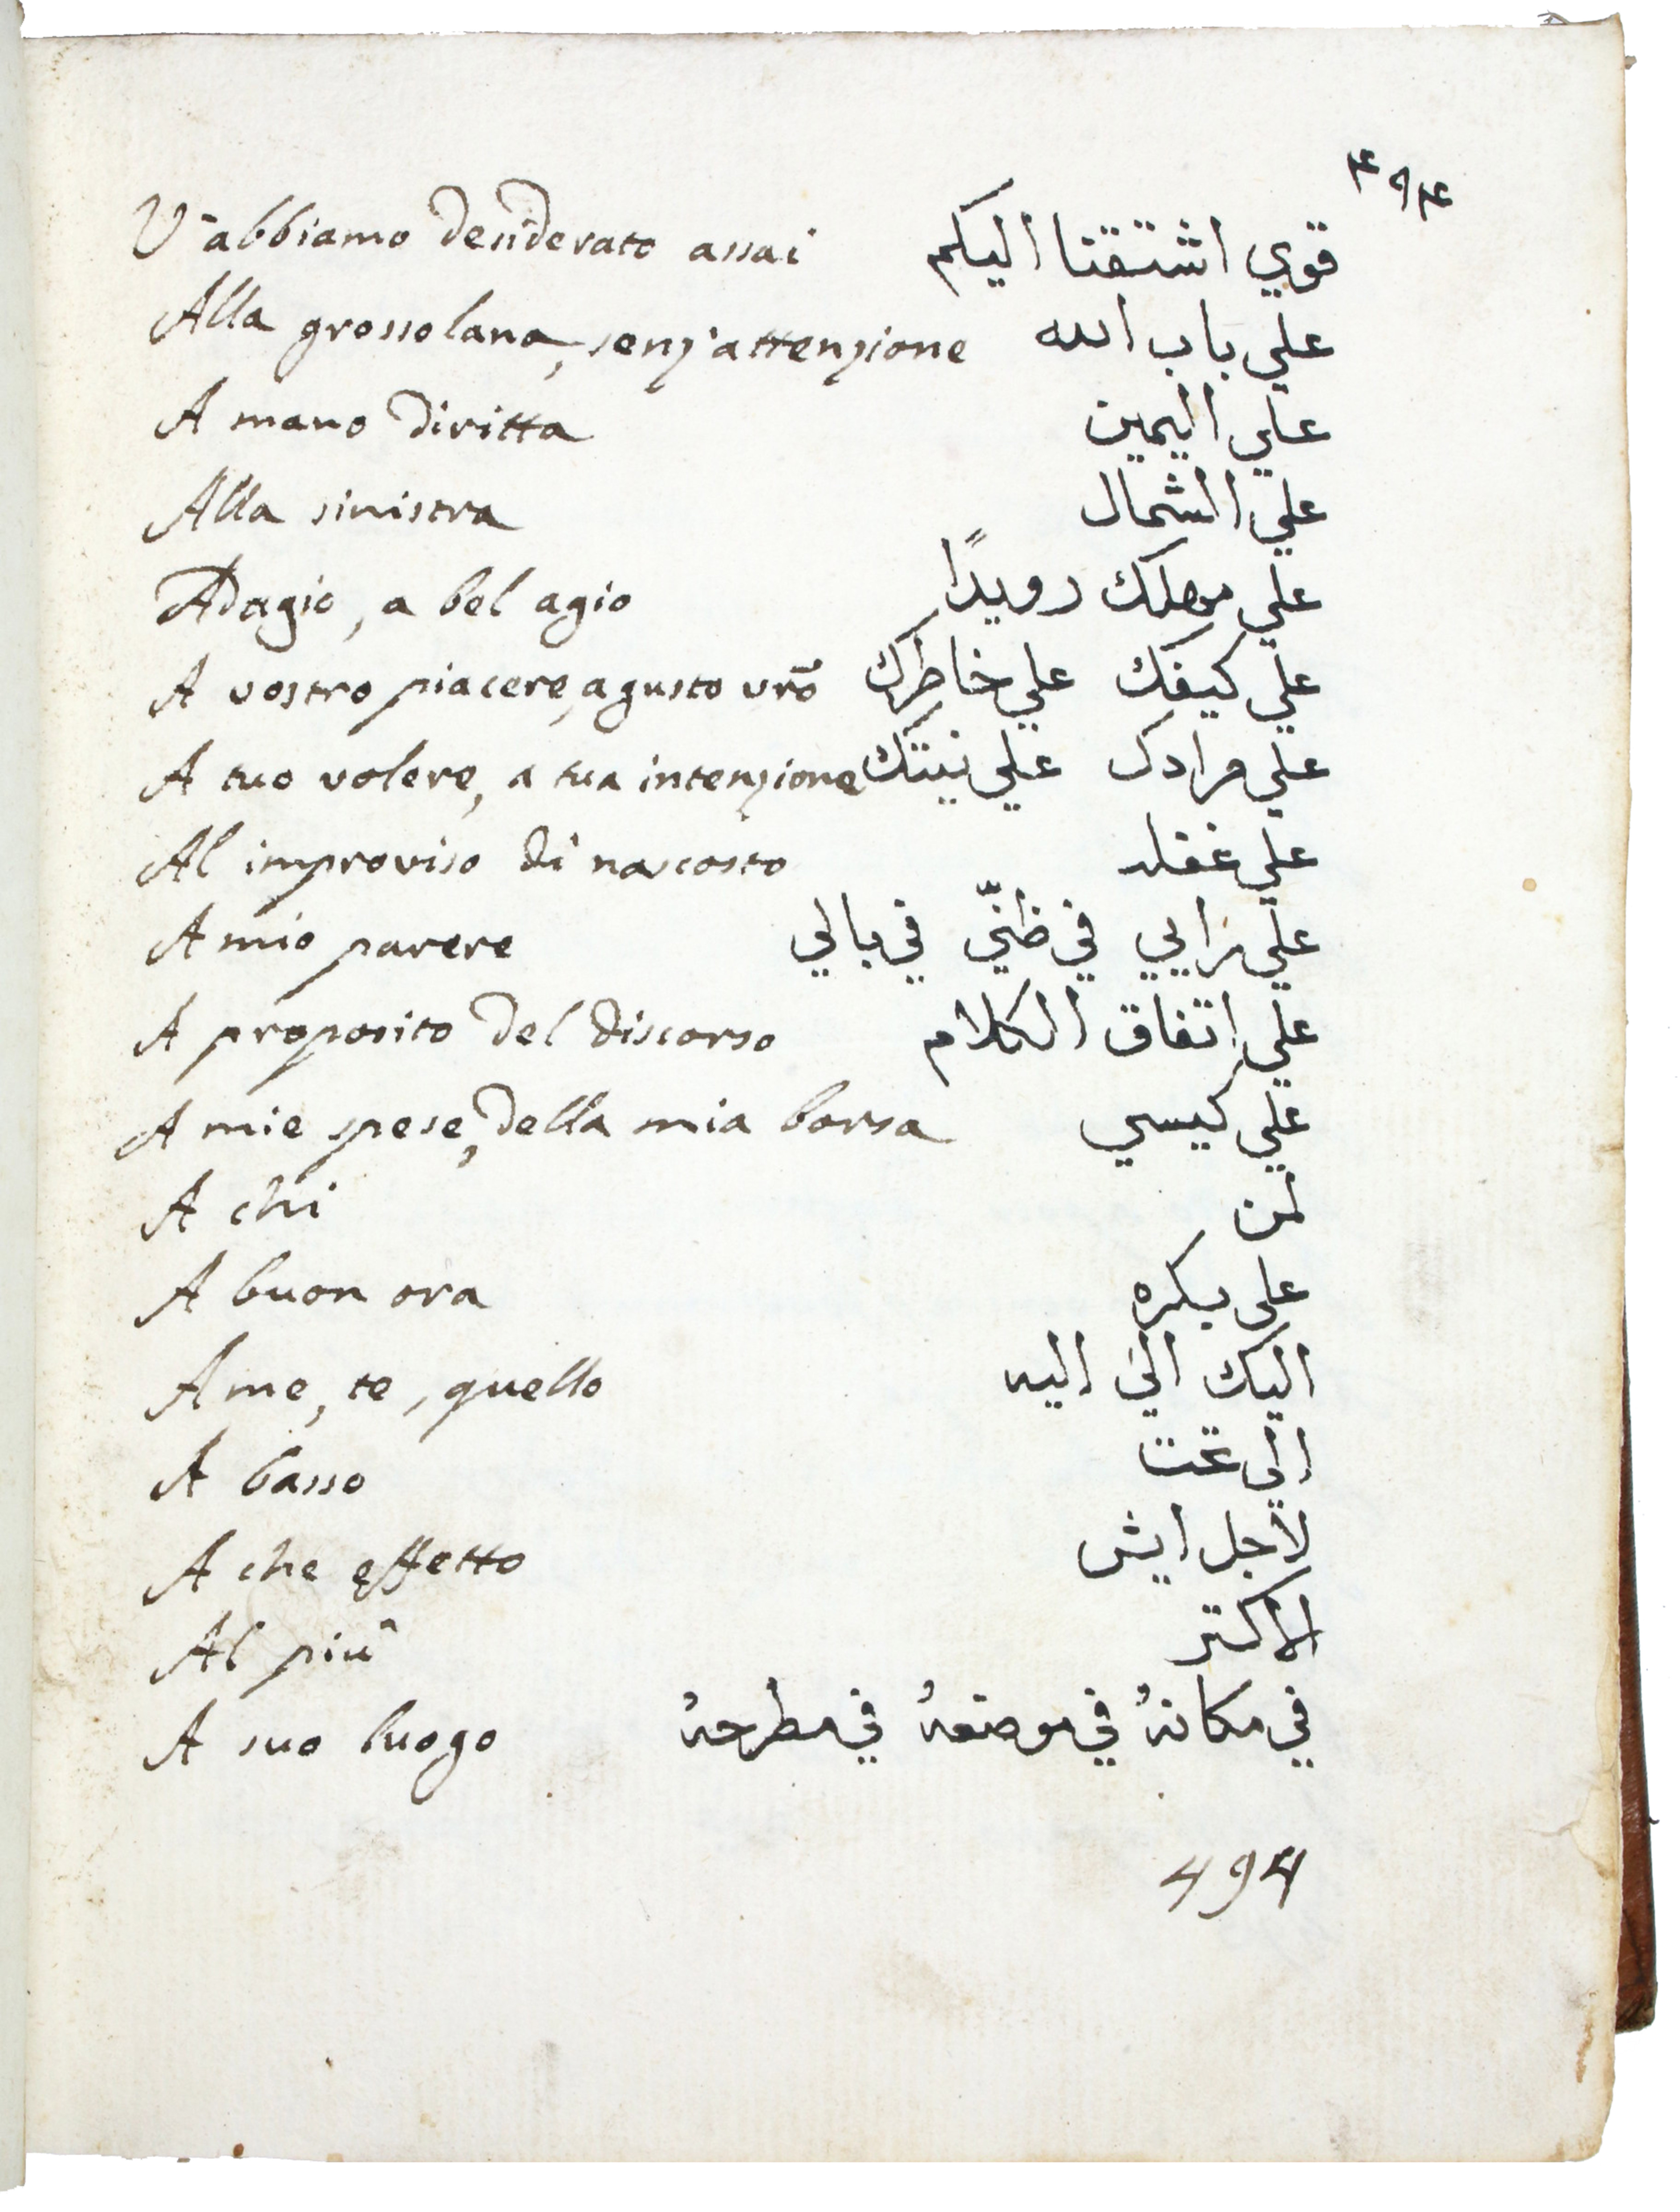 ٤٩٤
V'abbiamo desiderato assai قوي اشتقنا اليكم
Alla grossolana, senz'attenzione علي باب الله
A mano diritta علي اليمين
Alla sinistra علي الشمال
Adagio, a bel agio علي مهلك رويدًا
A vostro piacere, a gusto vrō علي كيفك علي خاطرك
A tuo volere, a tua intenzione علي مرادك علي نيتك
Al improviso di nascosto علي غفله
A mio parere علي رايي في ظنّي في بالي
A proposito del discorso علي اتفاق الكلام
A mie spese, della mia borsa علي كيسي
A chi لمن
A buon ora على بكره
A me, te, quello اليك اليَ اليه
A basso الي تحت
A che effetto لاجل ايش
Al più الاكتر
A suo luogo في مكانهُ في موضعهُ في مطرحهُ
494